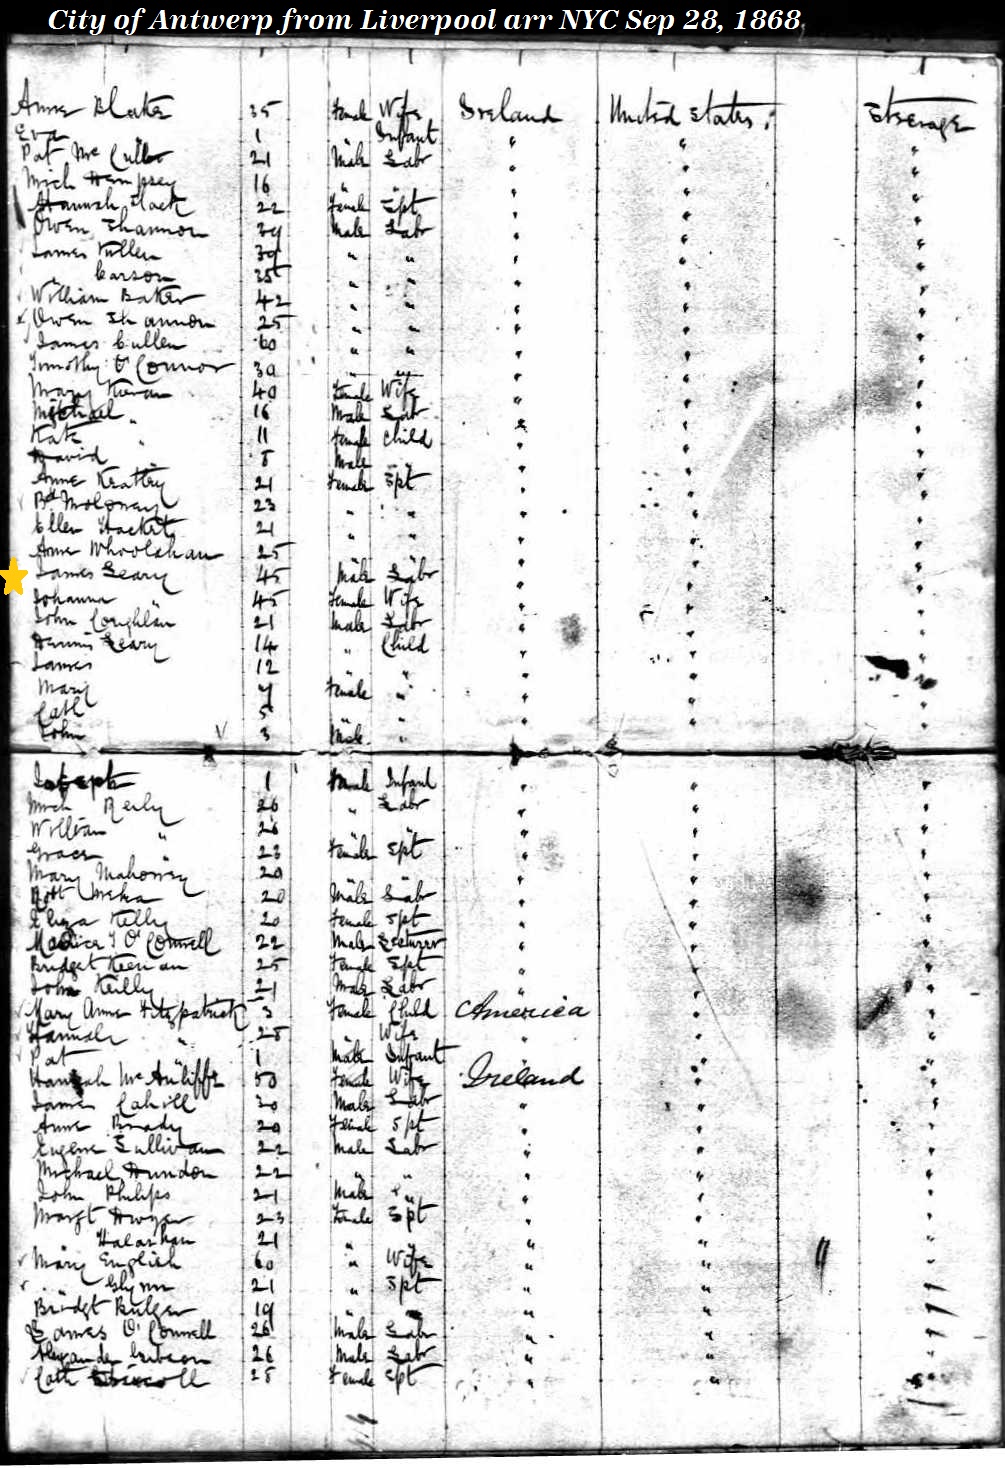 City of Antwerp from Liverpool arr NYC Sep 28, 1868
Anne Blake 35 Female Wife Ireland United States Steerage
Eva " 1 Infant " " "
Pat Mc 21 Male Labr " " "
Mich Dempsey 16 " " " " "
Hannah 22 Female Spt " " "
Owen Shannon 39 Male Labr " " "
James 39 " " " " "
" Carson 35 " " " " "
William Baker 42 " " " " "
Owen Shannon 25 " " " " "
James Cullen 60 " " " " "
Timothy O'Connor 30 " " " " "
Mary 40 Female Wife " " "
Michael " 16 Male Labr " " "
Kate " 11 Female Child " " "
David 8 Male " " " "
Anne 21 Female Spt " " "
Bd Moloney 23 " " " " "
Ellen Hackett 21 " " " " "
Anne Whoolahan 25 " " "
James Leary 45 Male Labr " " "
Johanna " 45 Female Wife " " "
John Coughlan 21 Male Labr " " "
Dennis Leary 14 " Child " " "
James 12 " " "
Mary 7 Female " " " "
Cath 5 " " " "
John 3 Male " " " "
Joseph 1 Male Infant " "
Mich Reily 26 " Labr " " "
William " 26 " " " " "
Grace 23 Female Spt " " "
Mary Mahoney 20 " " " "
Robt 20 Male Labr " " "
Eliza Kelly 20 Female Spt " " "
O'Connell 22 Male Lecturer " " "
Bridget Keenan 25 Female Spt " " "
John Reilly 21 Male Labr " " "
Mary Anne Fitzpatrick 3 Female Child America " "
Hannah " 28 Wife " " "
Pat 1 Male Infant " " "
Hannah McAuliffe 50 Female Wife Ireland " "
James Cahill 20 Male Labr " " "
Anne Brady 20 Female Spt " " "
Eugene Sullivan 22 Male Labr " " "
Michael 22 " " " " "
John Philips 21 Male " " " "
Margt Dwyer 23 Female Spt " " "
Halarhan 21 " " " "
Mary English 60 " Wife " " "
" Glynn 21 " Spt " " "
Bridgt Bulger 19 " " " "
James O'Connell 26 Male Labr " " "
Alexander Gibson 26 Male Labr " " "
Cath 28 Female Spt " " "